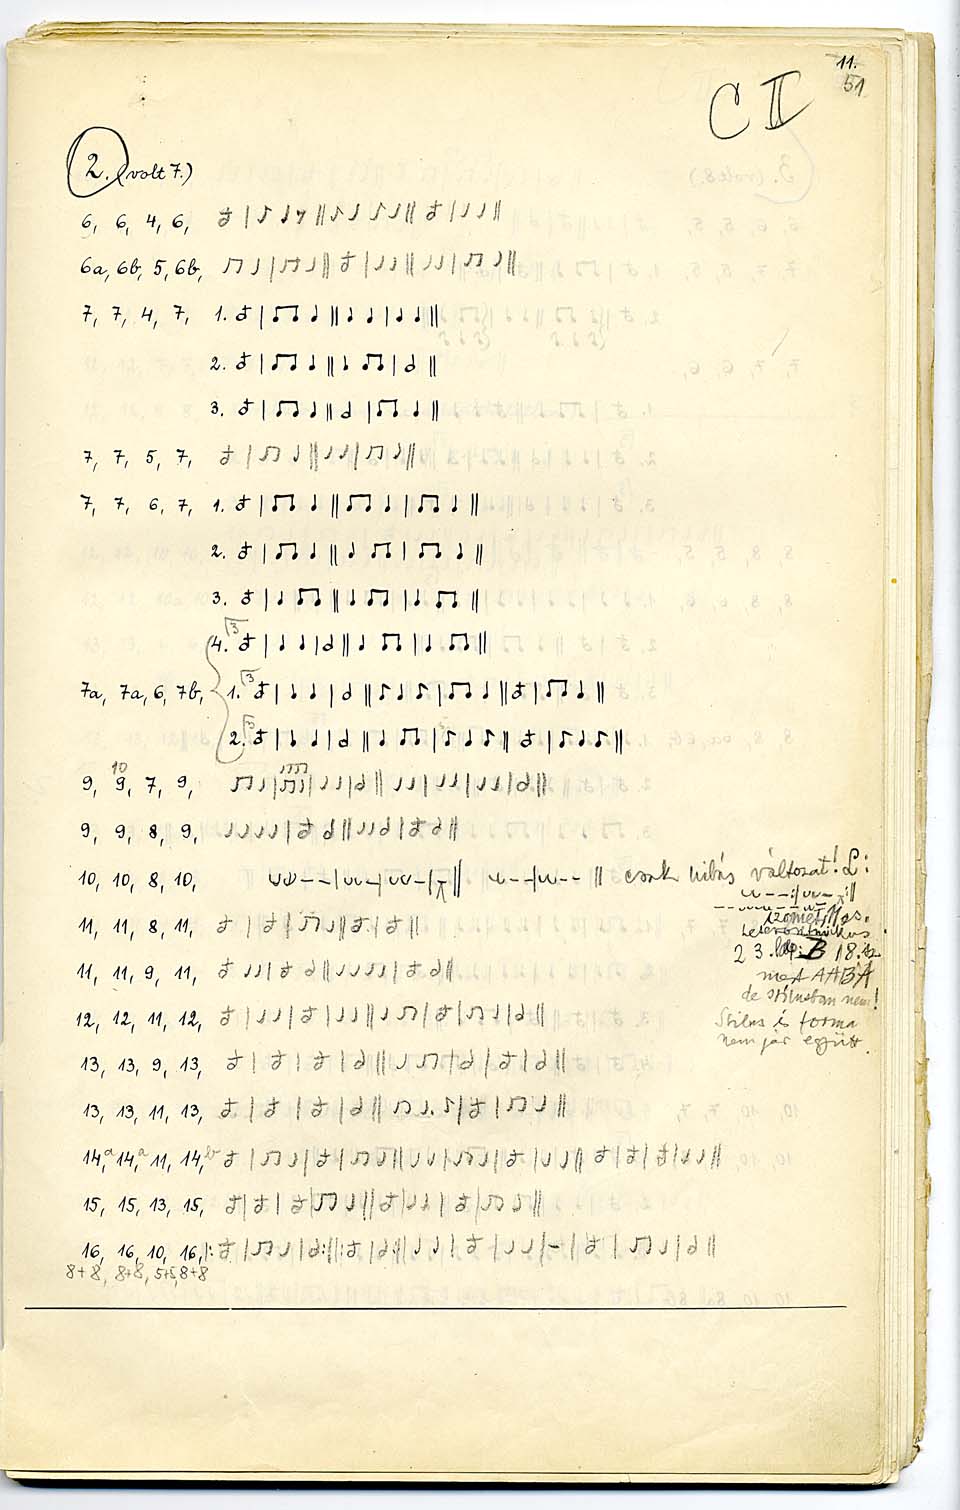 11.
51
C II
2. (volt 7.)
6, 6, 4, 6,
6a, 6b, 5, 6b,
7, 7, 4, 7, 1.
2.
3.
7, 7, 5, 7,
7, 7, 6, 7, 1.
2.
3.
4.
7a, 7a, 6, 7b, 1.
2.
10
9, 9, 7, 9,
9, 9, 8, 9,
10, 10, 8, 10, csak hibás változat! L:
11, 11, 8, 11,
23. lap B 18.
11, 11, 9, 11,
mert AABA
de stílusban nem!
12, 12, 11, 12, Stílus és forma
nem jár együtt.
13, 13, 9, 13,
13, 13, 11, 13,
14,a 14,a 11, 14,b
15, 15, 13, 15,
16, 16, 10, 16,
8+8, 8+8, 5+5, 8+8